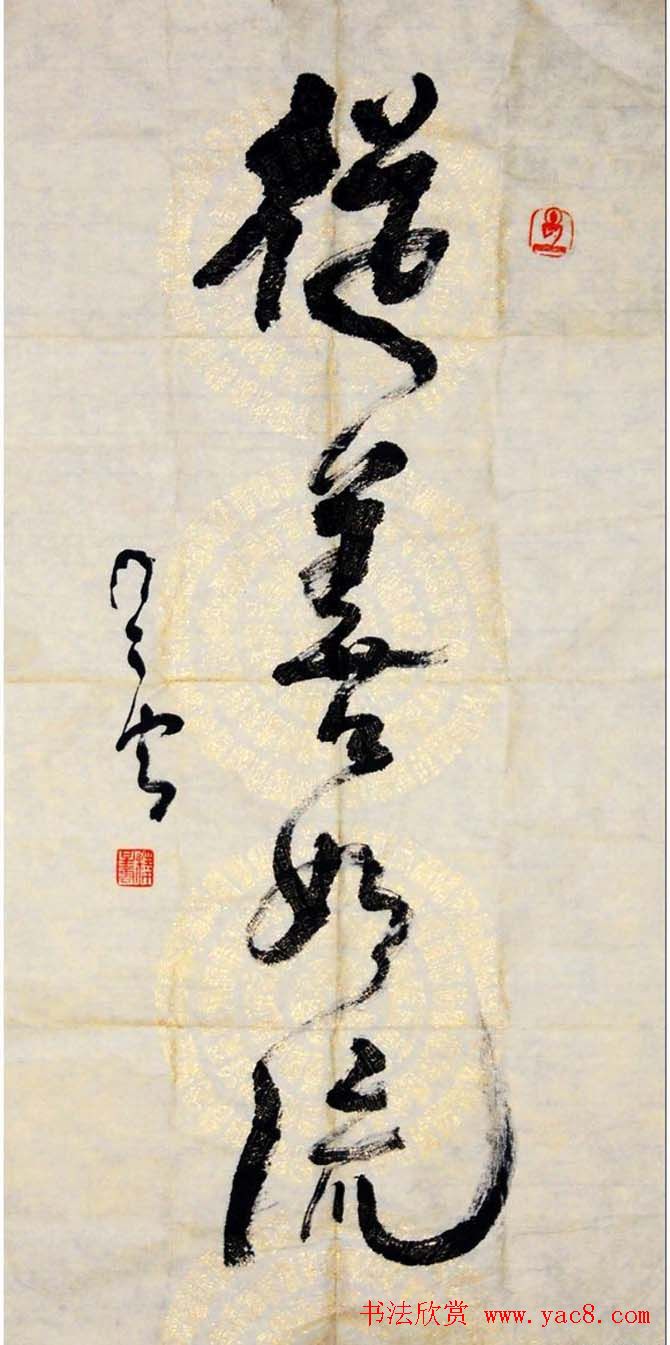 從善如流
星雲
书法欣赏 www.yac8.com